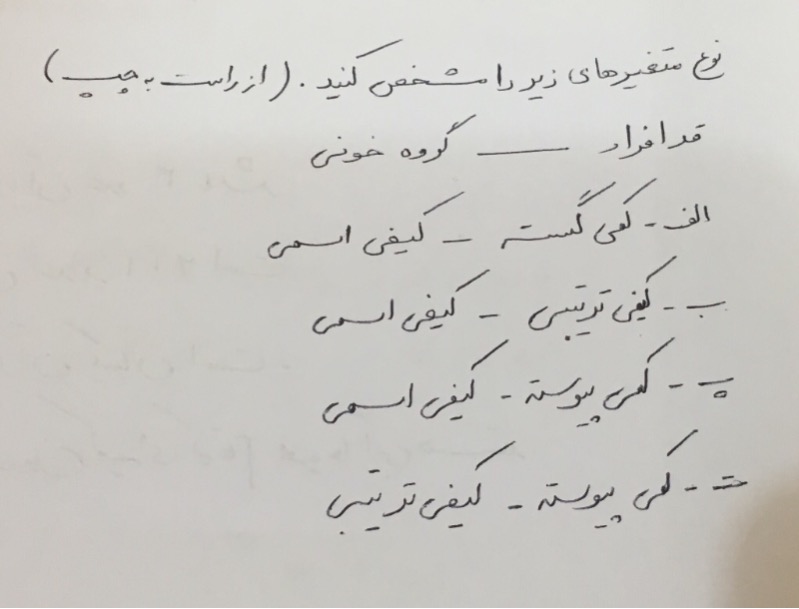 نوع متغیرهای زیر را مشخص کنید. (از راست به چپ)
قد افراد — گروه خونی
الف - کمی گسسته - کیفی اسمی
ب - کیفی ترتیبی - کیفی اسمی
پ - کمی پیوسته - کیفی اسمی
ت - کمی پیوسته - کیفی ترتیبی